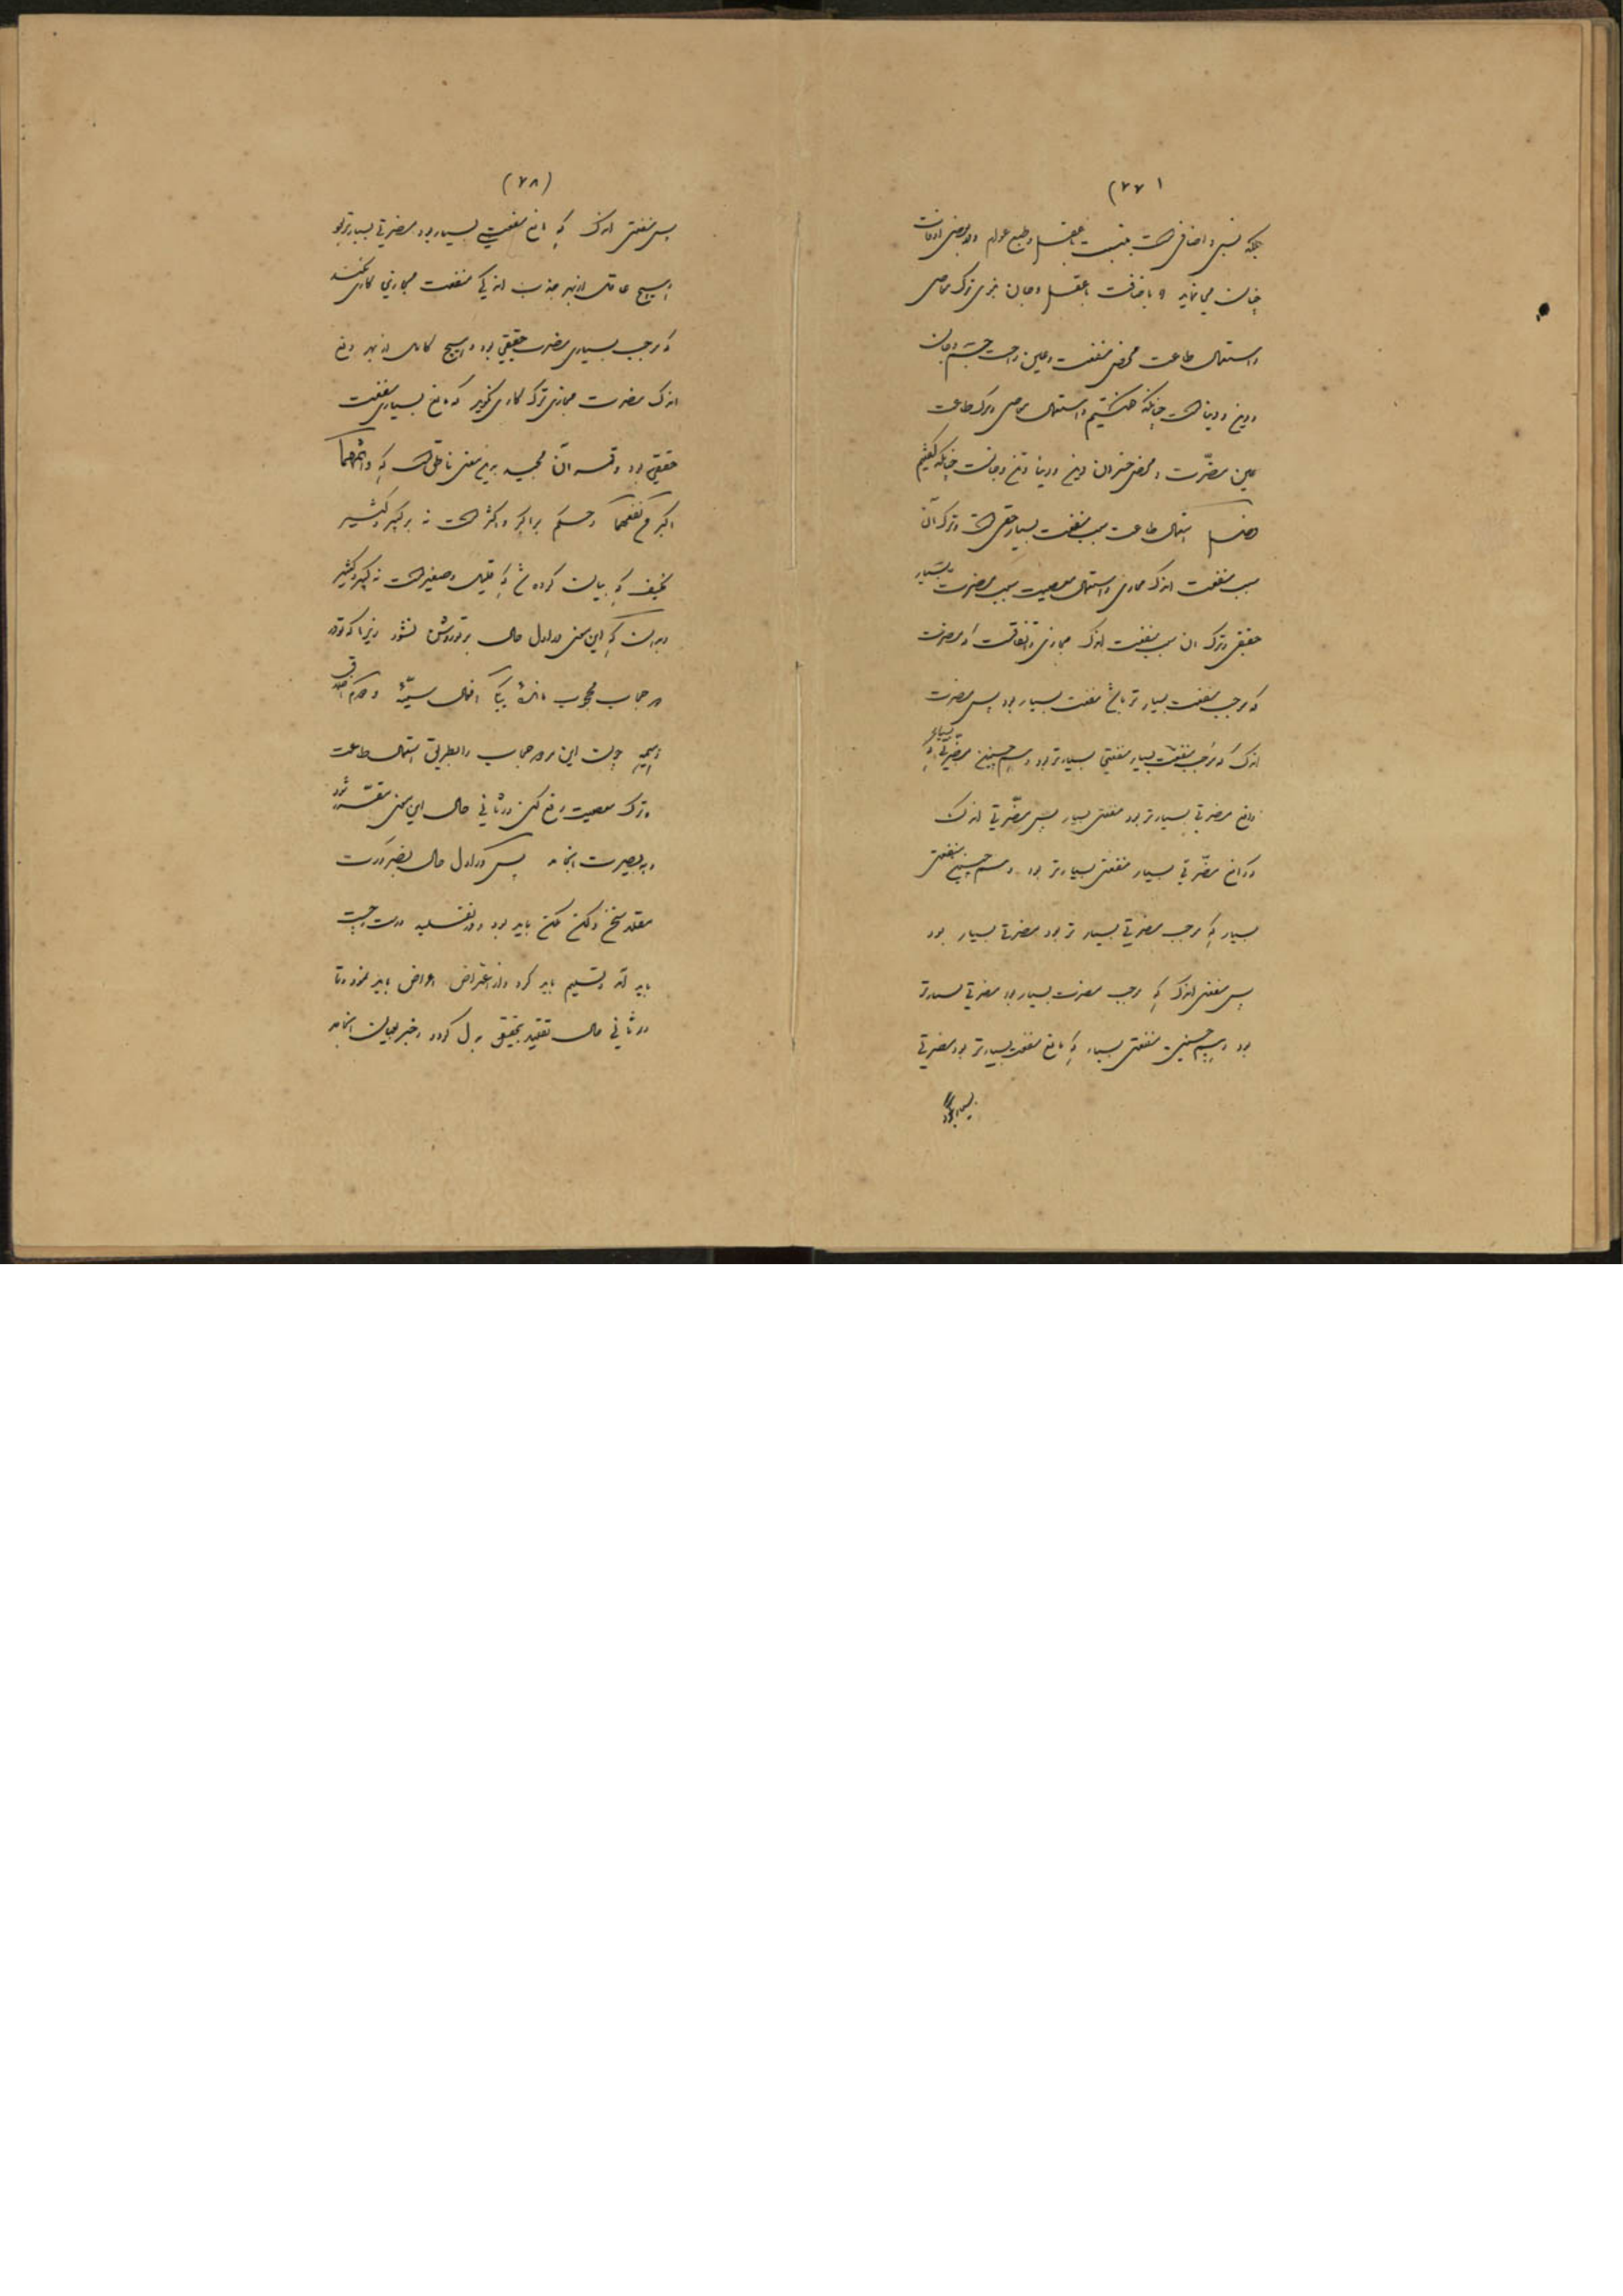 (۲۷)
بلکه نسبی و اضافی است بنسبت با عقل و طبع عوام و در بعضی اوقات
چنان می نماید و باضافت با عقل و جان بنوی ترک معاصی
و استعمال طاعت محض منفعت و عین راحت جسم و جان
و دین و دنیا است چنانکه استعمال معاصی و ترک طاعت
عین مضرّت و محض خسران دین و دنیا و تن و جانست چنانکه گفتیم
استعمال طاعت سبب منفعت بسیار حقیقی است و ترک آن
سبب منفعت اندک مجازی و استعمال معصیت سبب مضرت بسیار
حقیقی و ترک ان سبب منفعت اندک مجازی و اتفاقست که مضرت
که موجب منفعت بسیار تر باشد منفعت بسیار بود پس مضرت
اندک که موجب منفعت بسیار منفعتی بسیارتر بود و همچنین مضرتی بسیار که
دافع مضرتی بسیارتر بود منفعتی بسیار پس مضّرتی اندک
دافع مضّرتی بسیار منفعتی بسیارتر بود و همچنین منفعتی
بسیار که موجب مضرتی بسیار تر بود مضرتی بسیار بود
پس منفعتی اندک که موجب مضرت بسیار بود مضرتی بسیارتر
بود و همچنین منفعتی بسیار که مانع منفعت بسیارتر بود مضرتی
بسیار بود
(۲۸)
پس منفعتی اندک که مانع منفعتی بسیار بود مضرتی بسیارتر بود
و هیچ عاقل از بهر جذب اندکی منفعت مجازی کاری نکند
که موجب بسیاری مضرت حقیقی بود و هیچ کامل از بهر دفع
اندک مضرت مجازی ترک کاری نگوید که مانع بسیاری منفعت
حقیقی بود و قرآن مجید برین معنی ناطق است که و اثمهما
اکبر من نفعهما و حکم بر اکبر و اکثر است نه بر کبیر و کثیر
که بیان کرده شد که قلیل و صغیر است نه کبیر و کثیر
و بدان که این معنی در اول حال بر تو روشن نشود زیرا که تو در
در حجاب محجوب مانده افعال سیّئه و
ذمیمه چون این مرور حجاب را بطریق استعمال طاعت
و ترک معصیت رفع کنی در ثانی حال این معنی مقرر شود
و به بصیرت انجامد پس در اول حال بضرورت
مقلد کن مکن باید بود و در تقلید درست
باید آمد و تسلیم باید کرد و از اعتراض اعراض باید نمود و تا
در ثانی حال تقلید بتحقیق بدل گردد و خبر بعیان انجامد